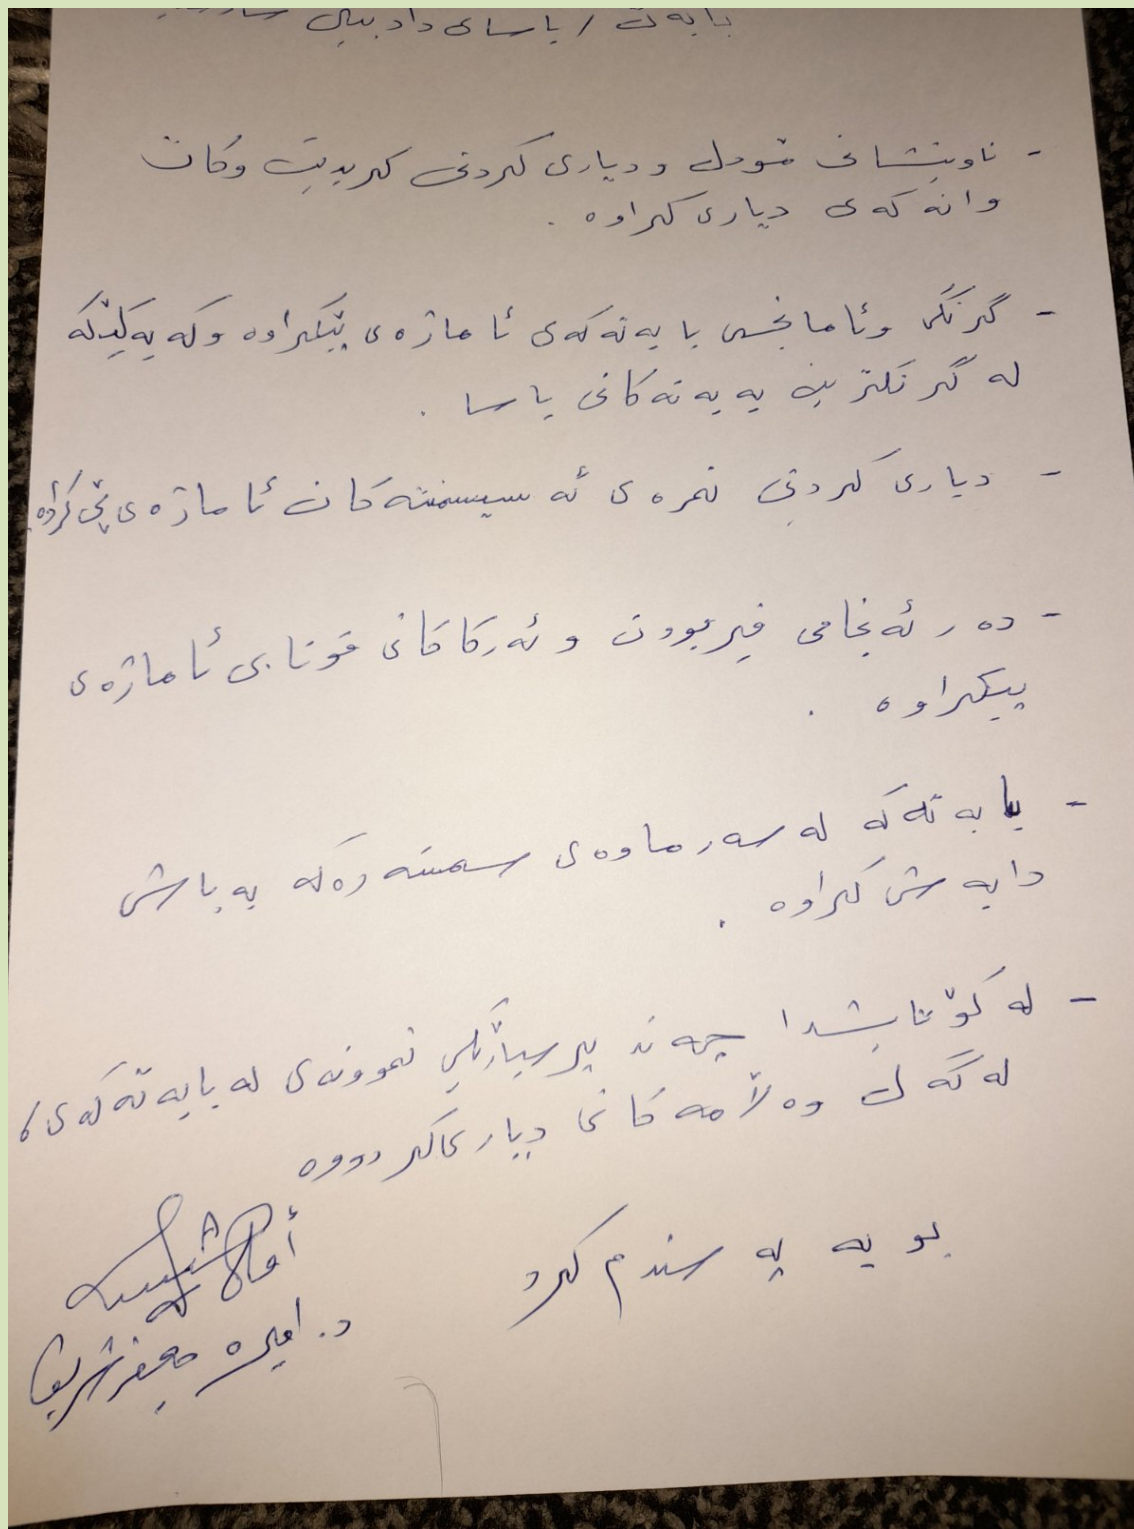 بابەت / یاسای دادبینی
- ناونیشانی مودل و دیاری کردنی کریدیت وکات
وانەکەی دیاری کراوە .
- گرنگی وئامانجی بابەتەکەی ئاماژەی پێکراوە وکە یەکێکە
لە گرنگترین بەبەتەکانی یاسا .
- دیاری کردنی نمرەی ئەسیسمنتەکان ئاماژەی پێ کراوە
- دەرئەنجامی فیربوون و ئەرکاکانی قوتابی ئاماژەی
پیکراوە .
- بابەتەکە لەسەر ماوەی سمستەرەکە بەباش
دابەش کراوە .
- لە کۆتایشدا چەند پرسیاڕێکی نموونەی لە بابەتەکەی
لەگەل وەڵامەکانی دیاری کردووە
بویە پەسندم کرد
د. امیرە جعفر شریف